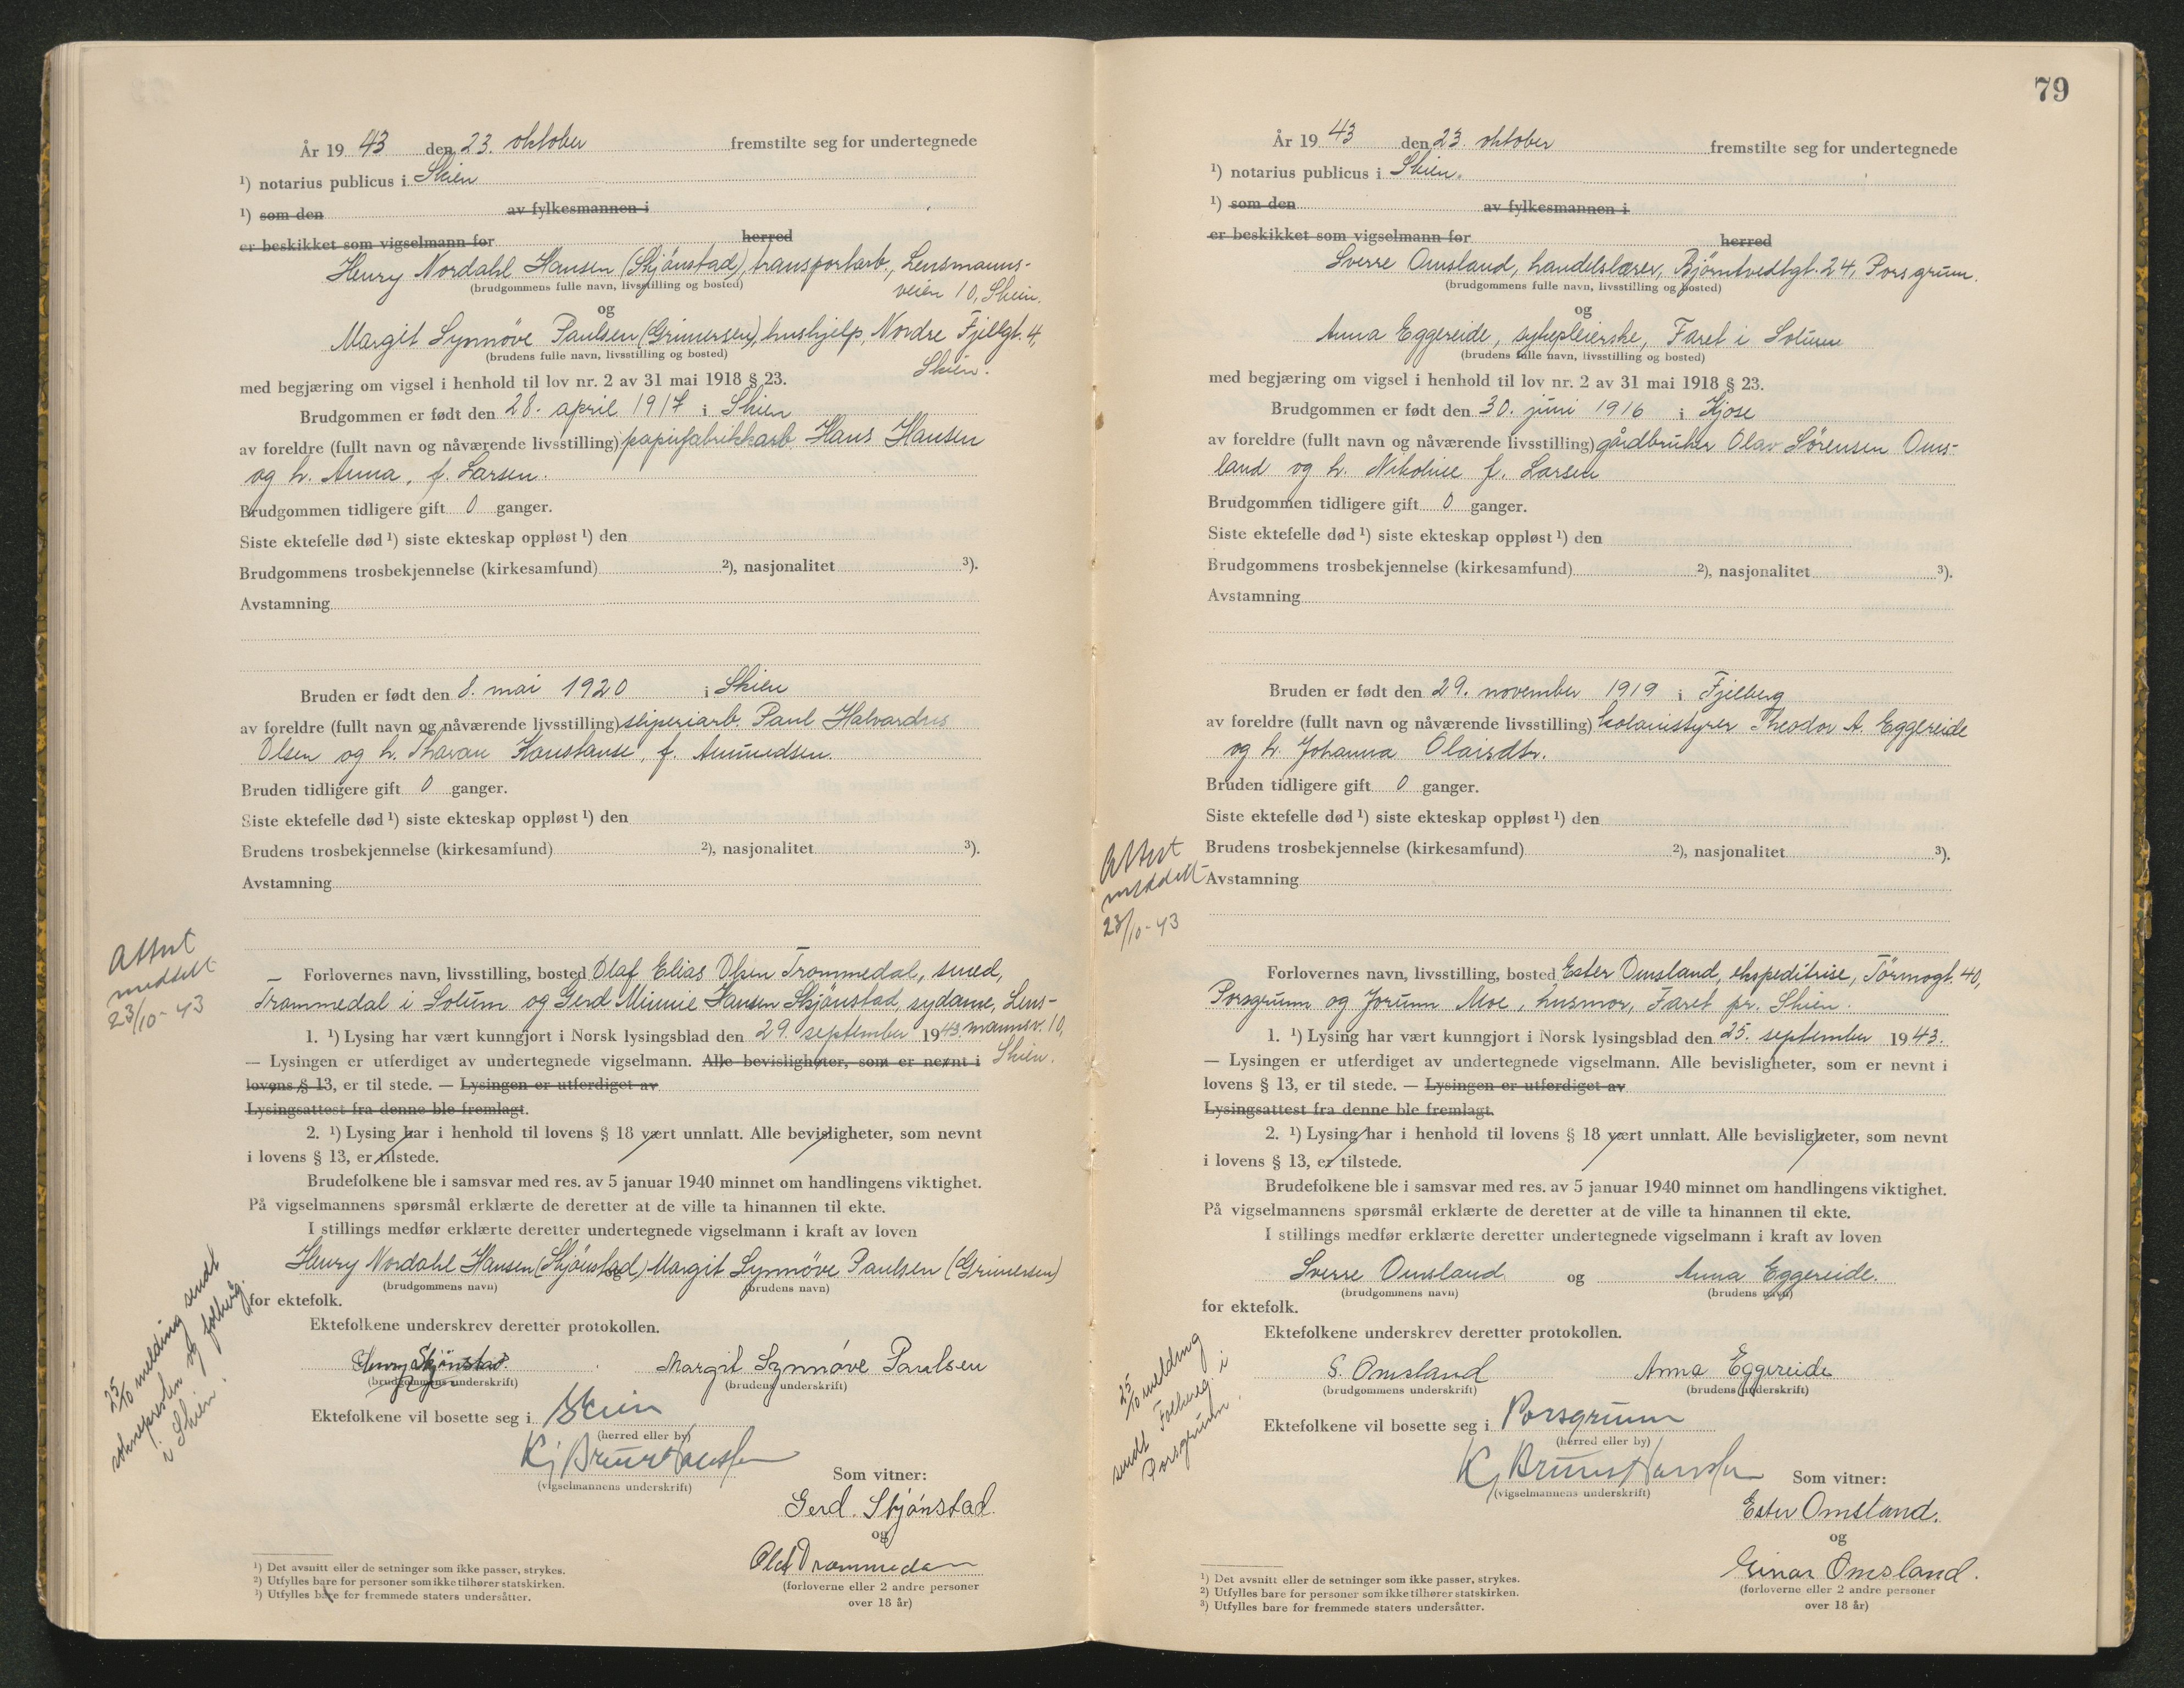 År 19 43 den 23. oktober fremstilte seg for undertegnede
¹) notarius publicus i Skien
¹) som den av fylkesmannen i
er beskikket som vigselmann for herred
Henry Nordahl Hansen (Skjönstad), transportarb., Lensmanns-
(brudgommens fulle navn, livsstilling og bosted)
veien 10, Skien.
og
Margit Synnöve Paulsen (Grinersen), hushjelp, Nordre Fjellgt. 4,
(brudens fulle navn, livsstilling og bosted)
Skien.
med begjæring om vigsel i henhold til lov nr. 2 av 31 mai 1918 § 23.
Brudgommen er født den 28. april 1917 i Skien
av foreldre (fullt navn og nåværende livsstilling) papirfabrikkarb. Hans Hansen
og h. Anna, f. Larsen.
Brudgommen tidligere gift 0 ganger.
Siste ektefelle død ¹) siste ekteskap oppløst ¹) den
Brudgommens trosbekjennelse (kirkesamfund) ²), nasjonalitet ³).
Avstamning
Bruden er født den 8. mai 1920 i Skien
av foreldre (fullt navn og nåværende livsstilling) sliperiarb. Paul Halvardus
Olsen og h. Tharan Konstanse, f. Amundsen.
Bruden tidligere gift 0 ganger.
Siste ektefelle død ¹) siste ekteskap oppløst ¹) den
Brudens trosbekjennelse (kirkesamfund) ²), nasjonalitet ³).
Avstamning
Attest
meddelt
23/10-43
— Forlovernes navn, livsstilling, bosted Olaf Elias Olsen Trommedal, smed,
Trommedal i Solum og Gerd Minnie Hansen Skjönstad, sydame, Lens-
mannsv. 10,
Skien.
1. ¹) Lysing har vært kunngjort i Norsk lysingsblad den 29. september 1943.
— Lysingen er utferdiget av undertegnede vigselmann. Alle bevisligheter, som er nevnt i
lovens § 13, er til stede. — Lysingen er utferdiget av
Lysingsattest fra denne ble fremlagt.
2. ¹) Lysing har i henhold til lovens § 18 vært unnlatt. Alle bevisligheter, som nevnt
i lovens § 13, er tilstede.
Brudefolkene ble i samsvar med res. av 5 januar 1940 minnet om handlingens viktighet.
På vigselmannens spørsmål erklærte de deretter at de ville ta hinannen til ekte.
I stillings medfør erklærte deretter undertegnede vigselmann i kraft av loven
Henry Nordahl Hansen (Skjönstad) og Margit Synnöve Paulsen (Grinersen)
(brudgommens navn) (brudens navn)
for ektefolk.
Ektefolkene underskrev deretter protokollen.
Henry Skjönstad. Margit Synnöve Paulsen
(brudgommens underskrift) (brudens underskrift)
25/10 melding sendt
soknepresten og folkereg.
i Skien.
Ektefolkene vil bosette seg i Skien
(herred eller by)
Kj Bruun Hanssen
(vigselmannens underskrift)
Som vitner:
Gerd. Skjönstad.
og
Olaf Trommedal
(forloverne eller 2 andre personer
over 18 år)
¹) Det avsnitt eller de setninger som ikke passer, strykes.
²) Utfylles bare for personer som ikke tilhører statskirken.
³) Utfylles bare for fremmede staters undersåtter.
79
År 19 43 den 23. oktober fremstilte seg for undertegnede
¹) notarius publicus i Skien.
¹) som den av fylkesmannen i
er beskikket som vigselmann for herred
Sverre Omsland, handelslærer, Björntvedtgt. 24, Porsgrunn.
(brudgommens fulle navn, livsstilling og bosted)
og
Anna Eggereide, sykepleierske, Faret i Solum
(brudens fulle navn, livsstilling og bosted)
med begjæring om vigsel i henhold til lov nr. 2 av 31 mai 1918 § 23.
Brudgommen er født den 30. juni 1916 i Kjose
av foreldre (fullt navn og nåværende livsstilling) gårdbruker Olav Sörensen Oms-
land og h. Nikoline f. Larsen
Brudgommen tidligere gift 0 ganger.
Siste ektefelle død ¹) siste ekteskap oppløst ¹) den
Brudgommens trosbekjennelse (kirkesamfund) ²), nasjonalitet ³).
Avstamning
Bruden er født den 29. november 1919 i Fjelberg
av foreldre (fullt navn og nåværende livsstilling) kolonistyrer Theodor A. Eggereide
og h. Johanna Olaisdtr.
Bruden tidligere gift 0 ganger.
Siste ektefelle død ¹) siste ekteskap oppløst ¹) den
Brudens trosbekjennelse (kirkesamfund) ²), nasjonalitet ³).
Avstamning
Attest
meddelt
23/10-43
Forlovernes navn, livsstilling, bosted Ester Omsland, ekspeditrise, Törmogt. 40,
Porsgrunn og Jorunn Moe, husmor, Faret pr. Skien.
1. ¹) Lysing har vært kunngjort i Norsk lysingsblad den 25. september 1943.
— Lysingen er utferdiget av undertegnede vigselmann. Alle bevisligheter, som er nevnt i
lovens § 13, er til stede. — Lysingen er utferdiget av
Lysingsattest fra denne ble fremlagt.
2. ¹) Lysing har i henhold til lovens § 18 vært unnlatt. Alle bevisligheter, som nevnt
i lovens § 13, er tilstede.
Brudefolkene ble i samsvar med res. av 5 januar 1940 minnet om handlingens viktighet.
På vigselmannens spørsmål erklærte de deretter at de ville ta hinannen til ekte.
I stillings medfør erklærte deretter undertegnede vigselmann i kraft av loven
Sverre Omsland og Anna Eggereide.
(brudgommens navn) (brudens navn)
for ektefolk.
Ektefolkene underskrev deretter protokollen.
S. Omsland Anna Eggereide
(brudgommens underskrift) (brudens underskrift)
25/10 melding
sendt Folkereg. i
Porsgrunn.
Ektefolkene vil bosette seg i Porsgrunn
(herred eller by)
Kj Bruun Hanssen
(vigselmannens underskrift)
Som vitner:
Ester Omsland.
og
Einar Omsland.
(forloverne eller 2 andre personer
over 18 år)
¹) Det avsnitt eller de setninger som ikke passer, strykes.
²) Utfylles bare for personer som ikke tilhører statskirken.
³) Utfylles bare for fremmede staters undersåtter.